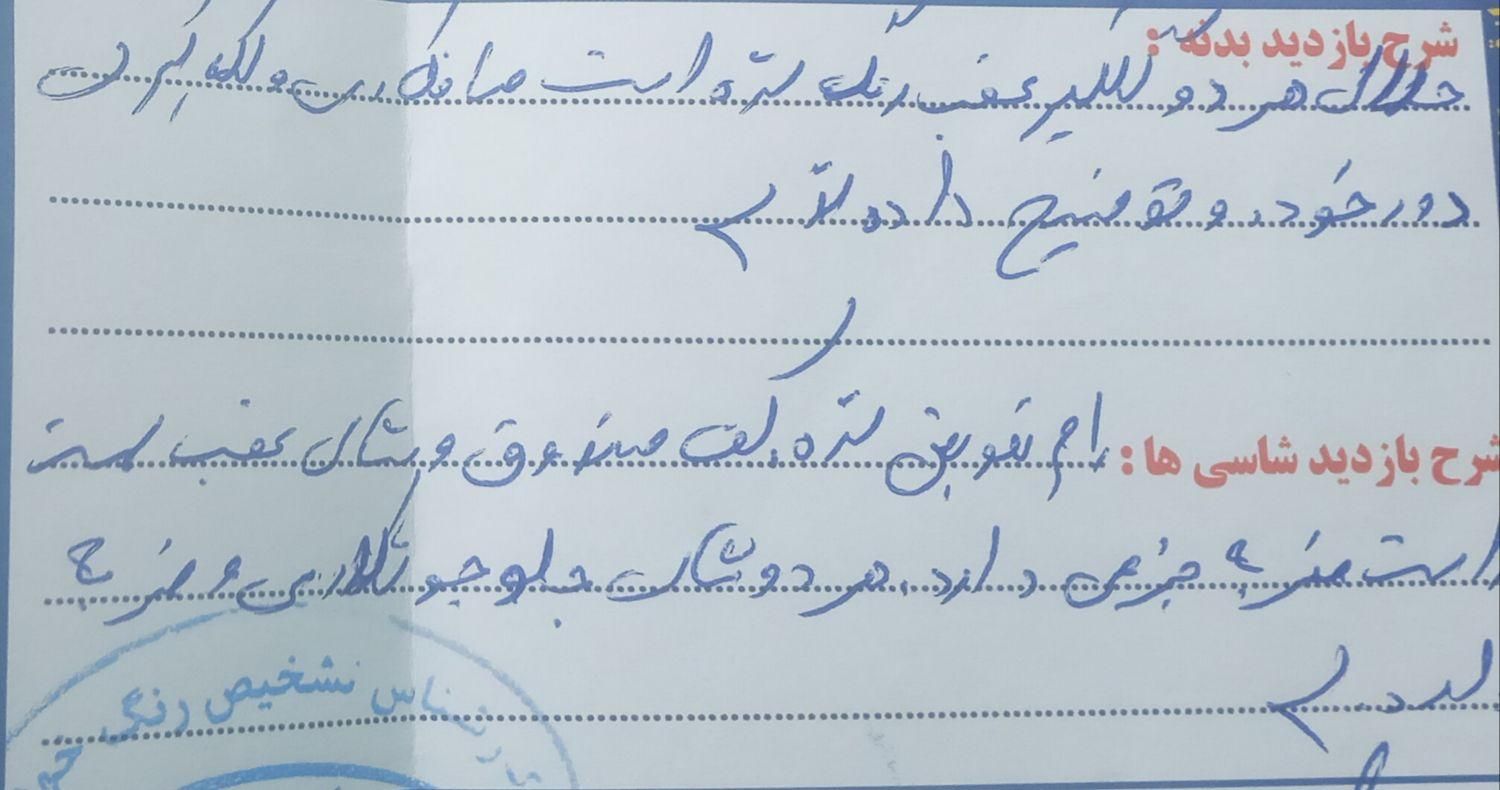 شرح بازدید بدنه :
هر دو گلگیر عقب رنگ شده است صافکاری و لکه گیری
دور خود، و توضیح داده شد
شرح بازدید شاسی ها : رام تعویض شده، کف صندوق و شاسی عقب سمت
راست ضربه جزئی دارد، هر دو شاسی جلو جوشکاری و ضربه
کارشناس تشخیص رنگ